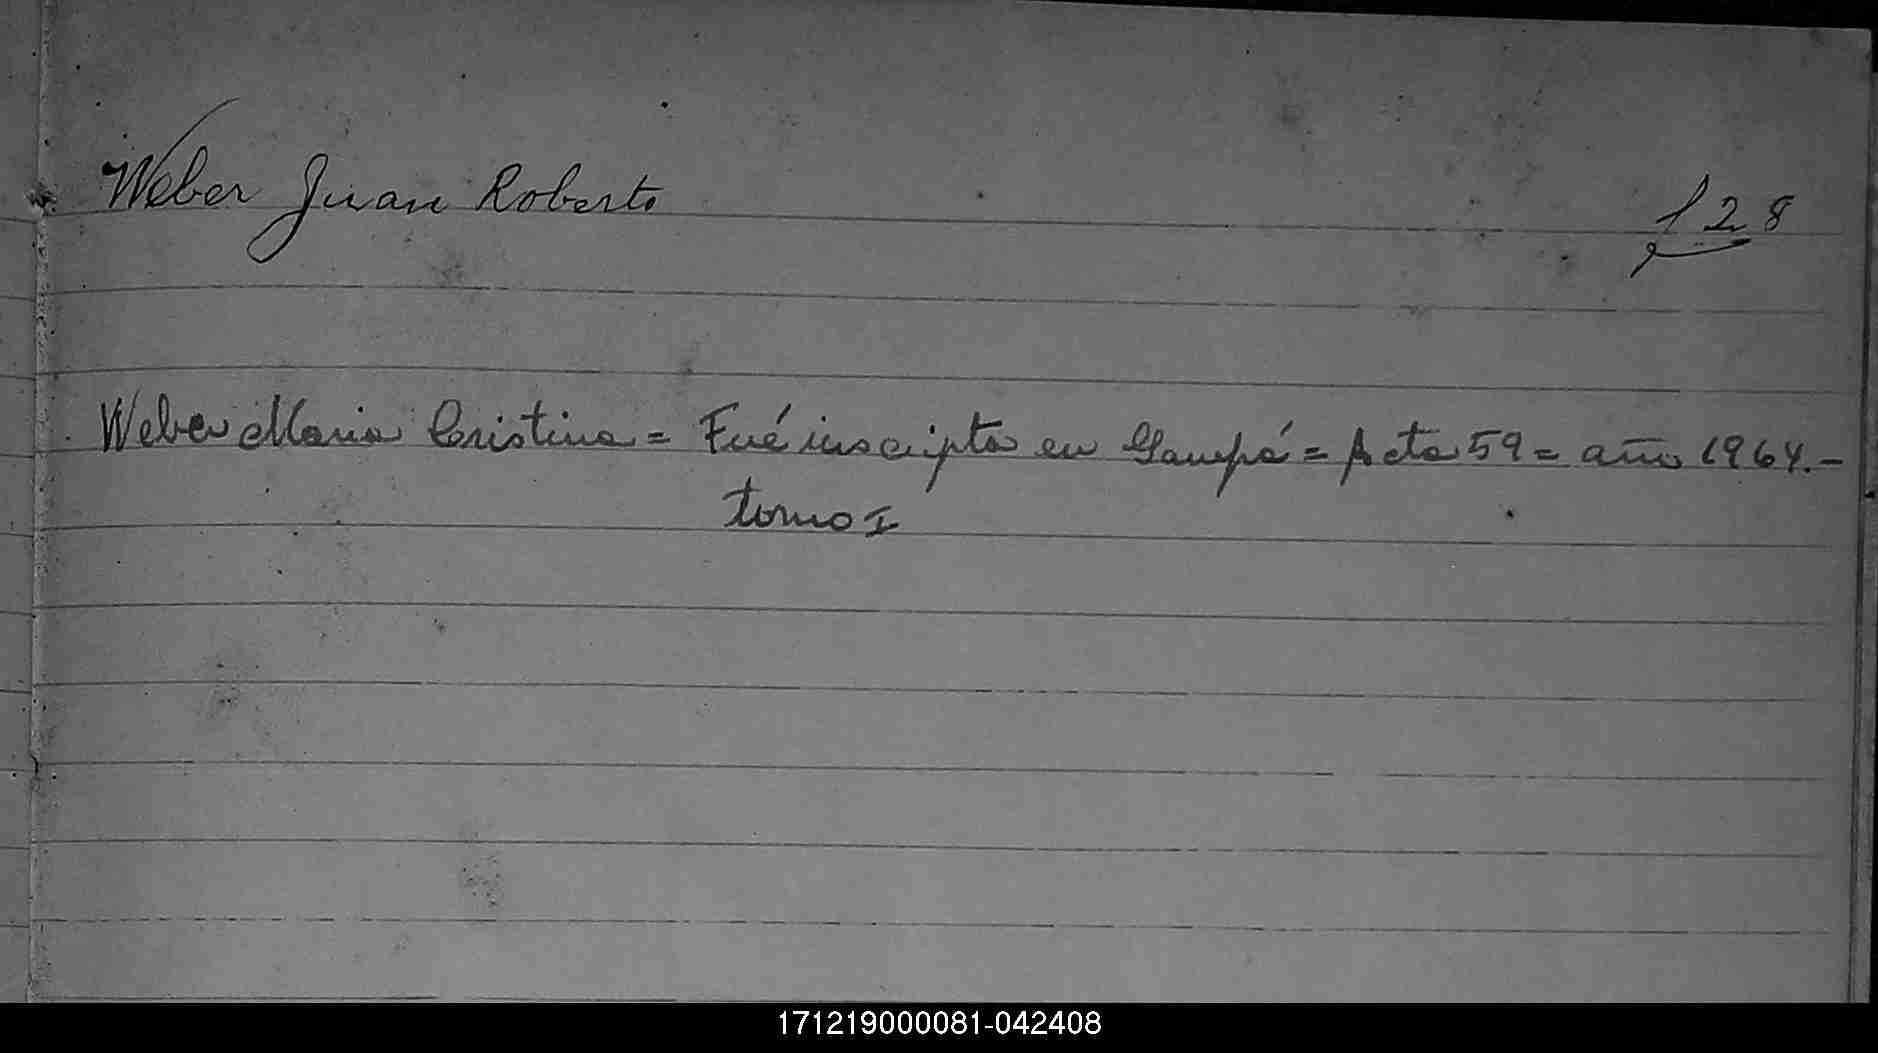 Weber Juan Roberto f 28
Weber Maria Cristina = Fué inscripta en Garupá = Acta 59 = año 1964.-
tomo I
171219000081-042408